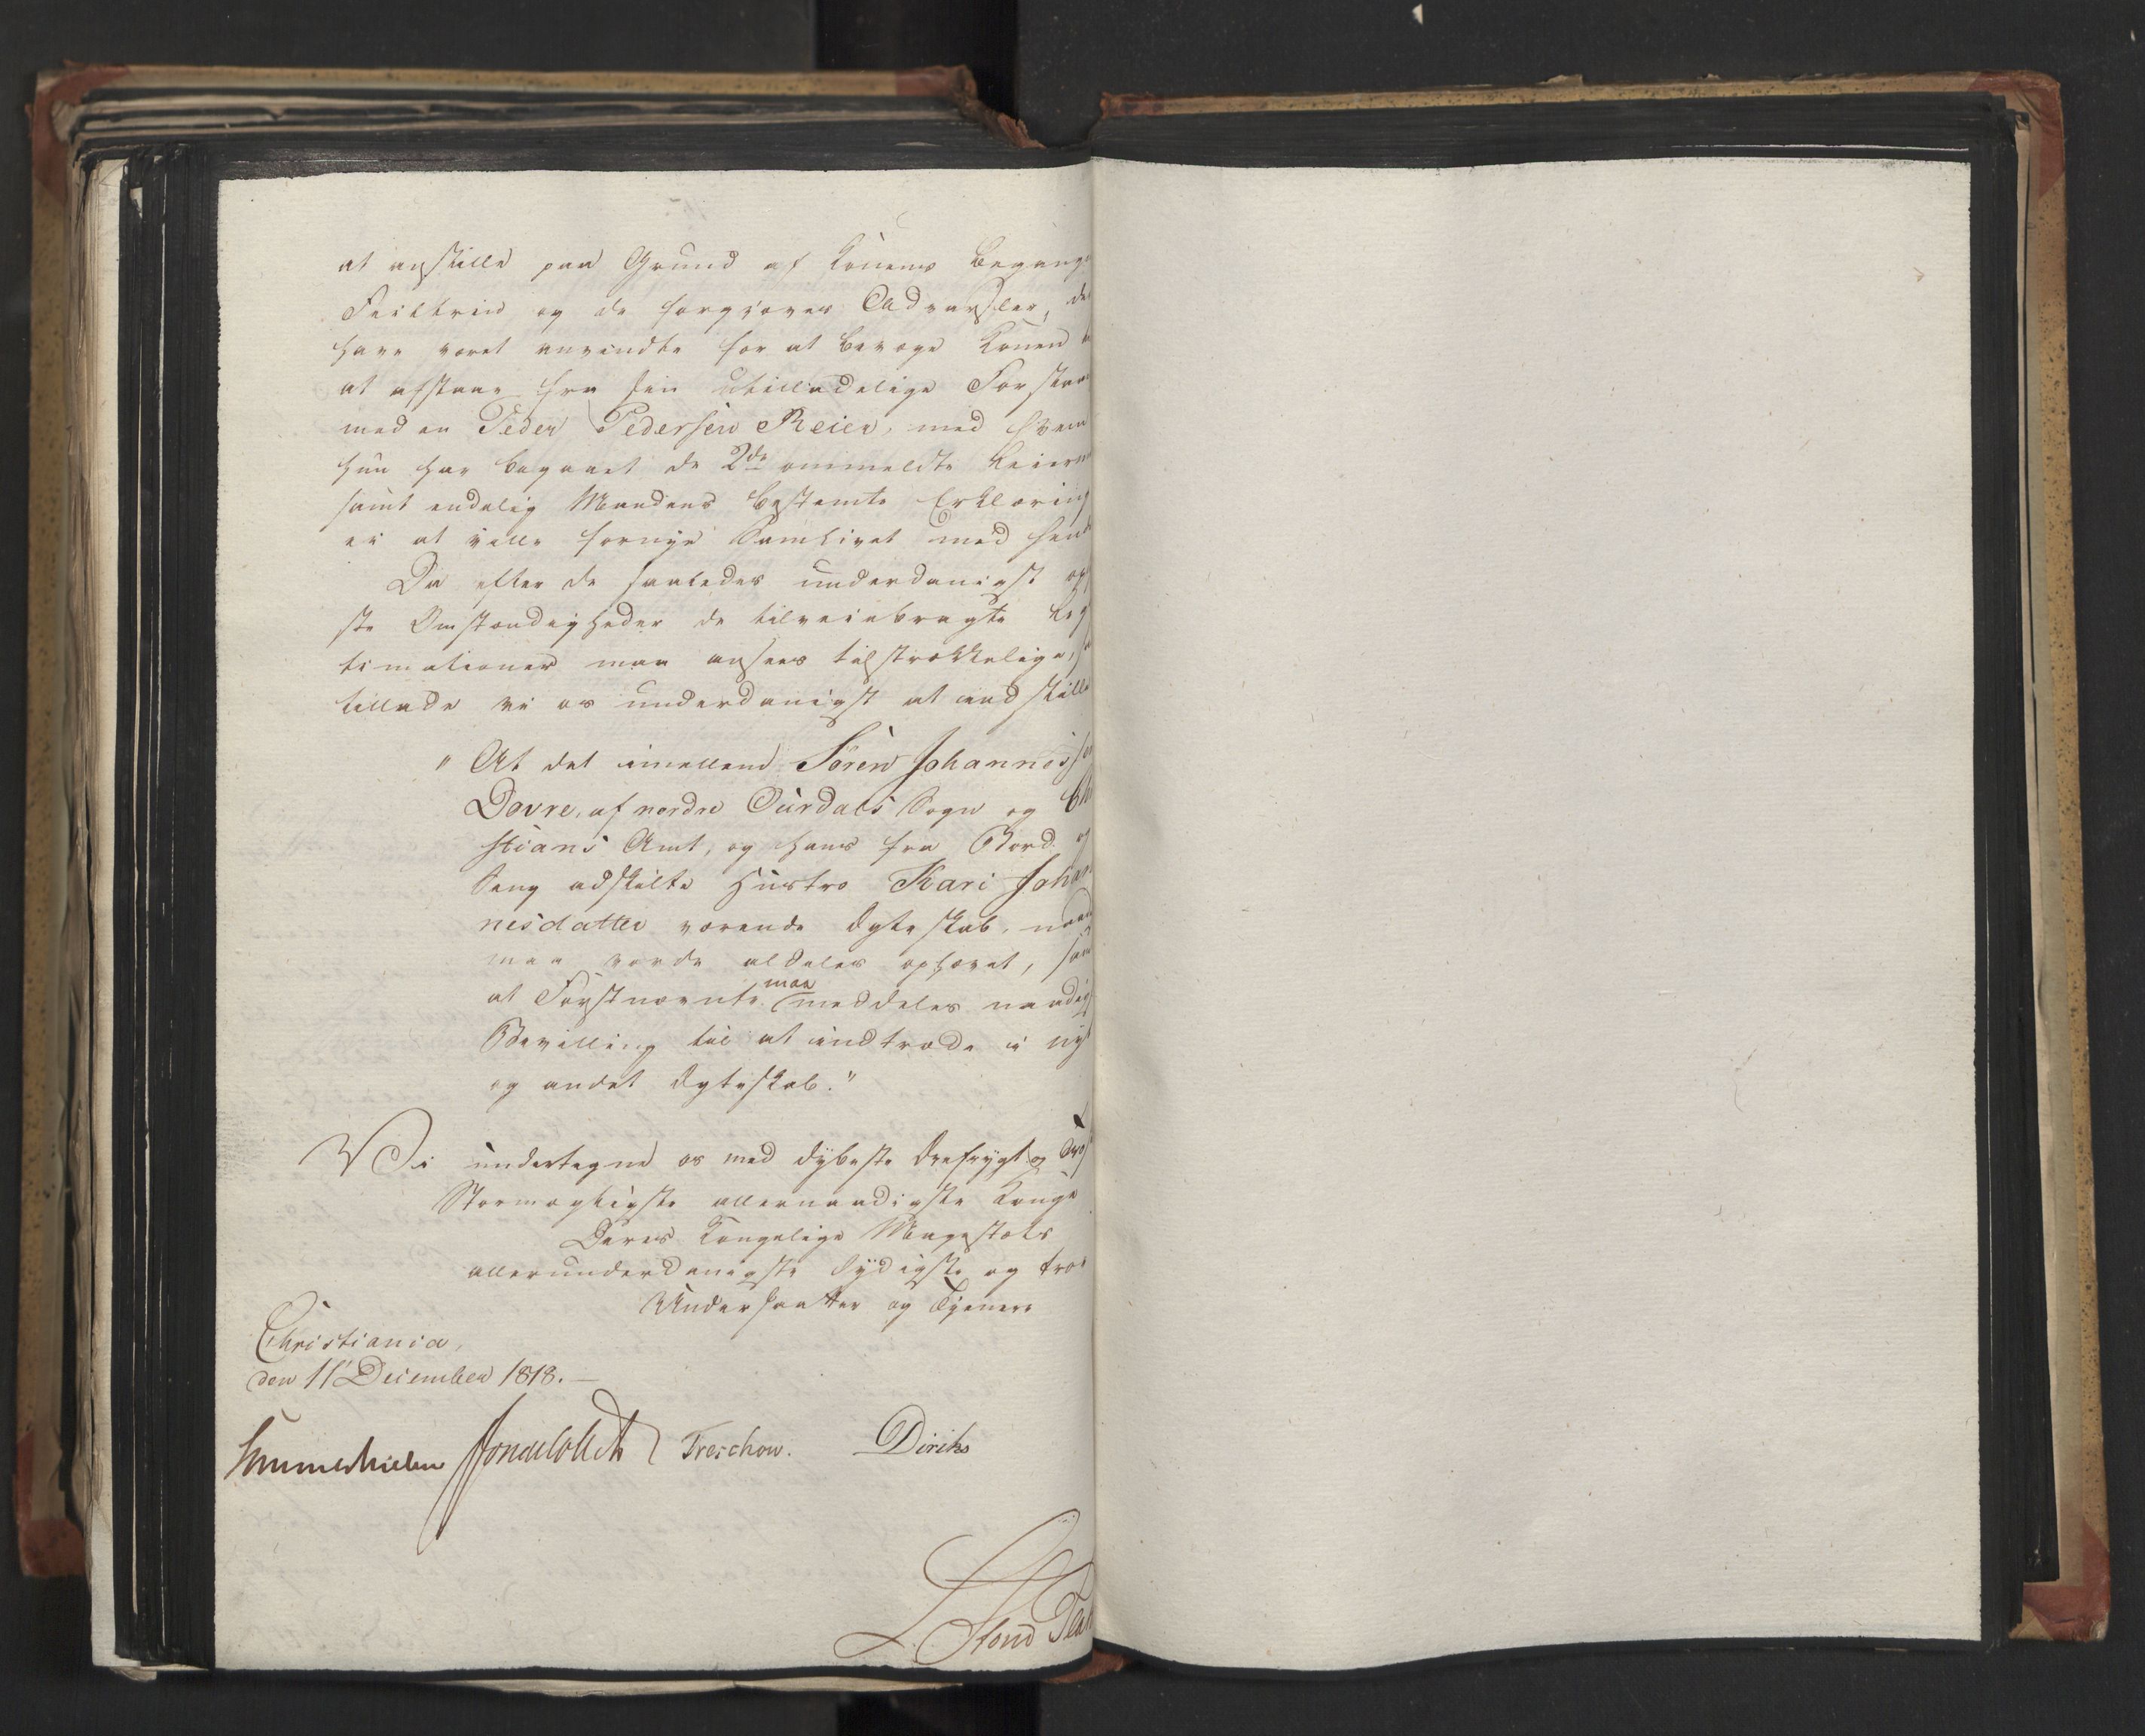 at anstille paa Grund af Konens begang
Feiltrin og de forgjæves Advarsler, de
have været anvendte for at bevæge Konen
at afstaae fra sin utilladelige Forstaae
med en Peder Pedersen Reier, med hvem
hun har begaaet de 2de ommeldte Leierm
samt endelig Mandens bestemte Erklæring
ei at ville fornye Samlivet med hende
Da efter de saaledes underdanigst op
ste Omstændigheder de tilveiebragte Leg
timationer maa ansees tilstrækkelige,
tillade vi os underdanigst at indstille
" At det imellem Sören Johannessen
Dovre, af nordre Ourdals Sogn og Chr
stians Amt, og hans fra Bord og
Seng adskilte Hustro Kari Johan
nesdatter værende Ægteskab, naad
maa vorde aldeles ophævet, sam
at Førstnævnte maa meddeles naadigst
Bevilling til at indtræde i nyt
og andet Ægteskab."
Vi undertegne os med dybeste Ærefrygt og
Stormægtigste allernaadigste Konge
Deres Kongelige Majestæts
allerunderdanigste lydigste og troe
Undersaatter og Tjenere
Christiania,
den 11' December 1818. —
Sommerhielm Jonas Collett Treschow. Diriks